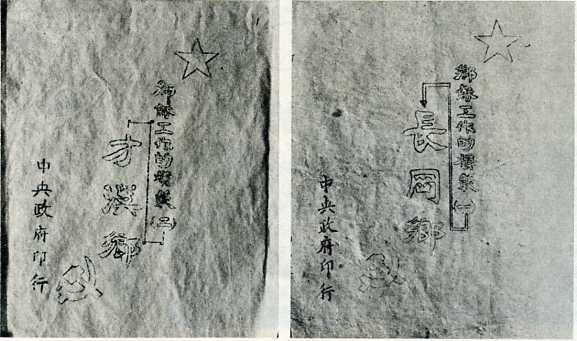 鄉蘇工作的模範(二)
才溪鄉
中央政府印行
鄉蘇工作的模範(一)
長岡鄉
中央政府印行